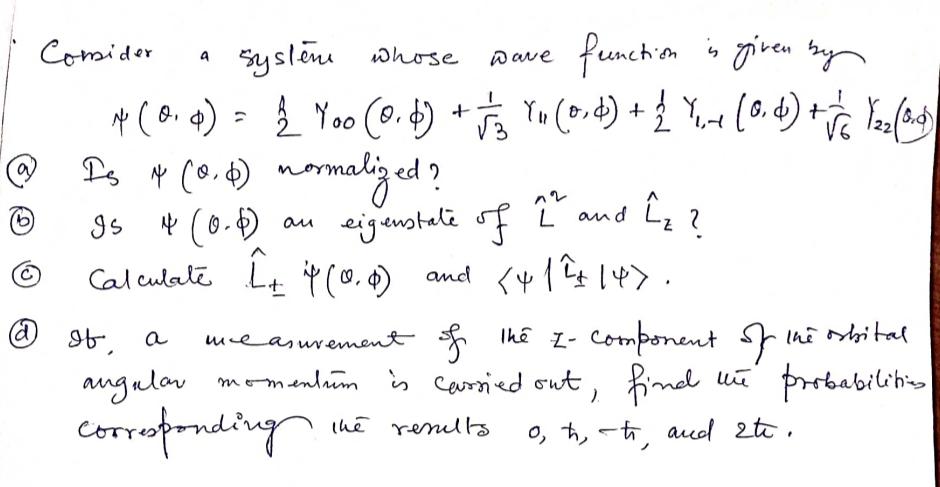 Consider a system whose wave function is given by
ψ(θ,φ) = 1/2 Y₀₀(θ,φ) + 1/√3 Y₁₁(θ,φ) + 1/2 Y₁,₋₁(θ,φ) + 1/√6 Y₂₂(θ,φ)
(a) Is ψ(θ,φ) normalized?
(b) Is ψ(θ,φ) an eigenstate of L̂² and L̂z?
(c) Calculate L̂± ψ(θ,φ) and <ψ|L̂±|ψ>.
(d) If, a measurement of the z-component of the orbital
angular momentum is carried out, find the probabilities
corresponding the results 0, ħ, -ħ, and 2ħ.